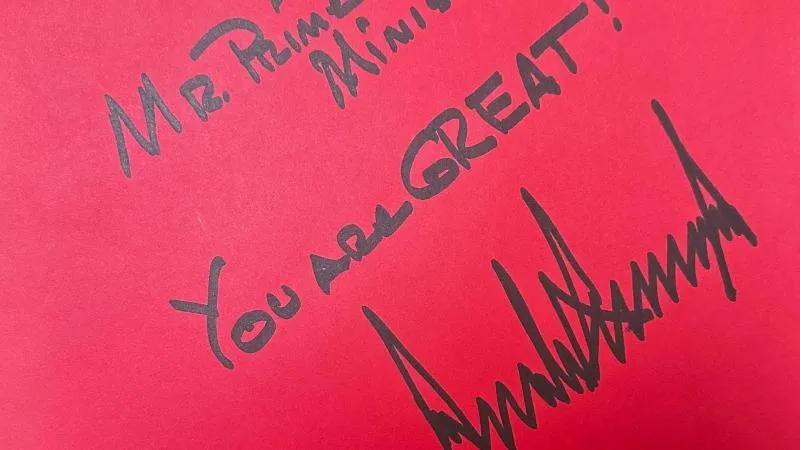 Mr. Prime
Minis
You are GREAT!